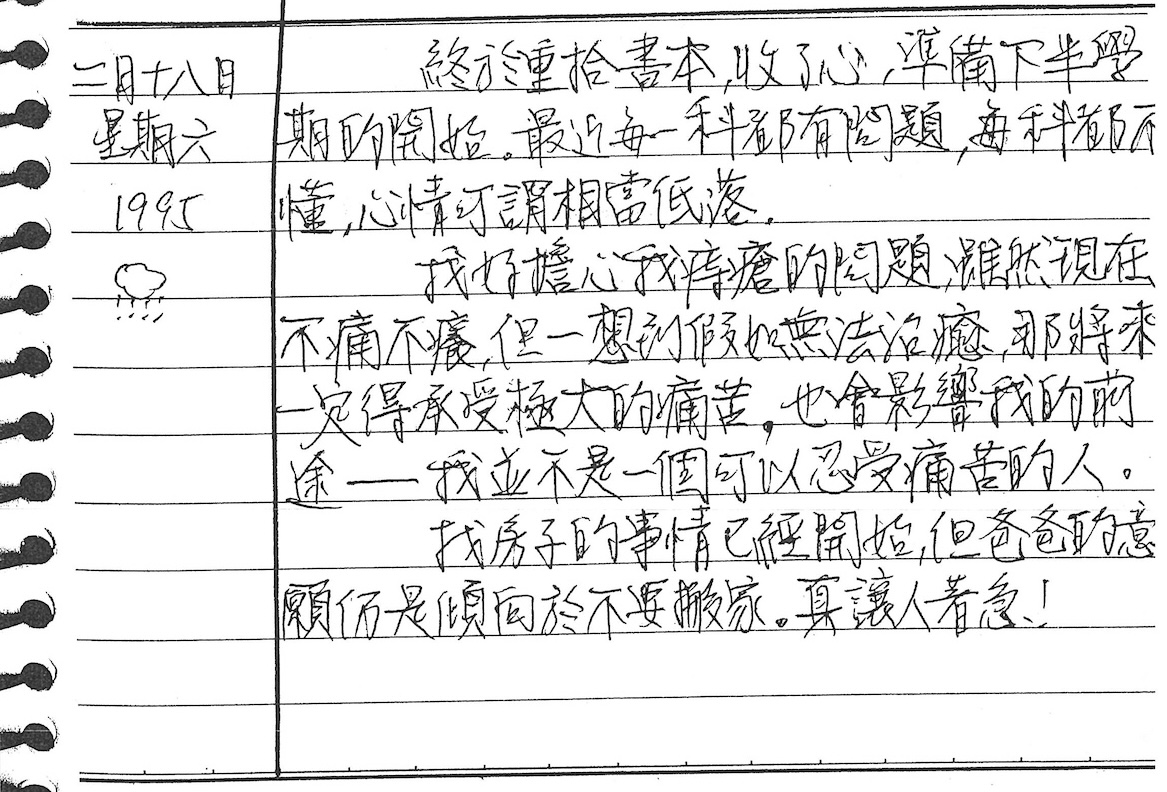 二月十八日
星期六
1995
終於重拾書本,收了心,準備下半學
期的開始。最近每一科都有問題,每科都不
懂,心情可謂相當低落。
我好擔心我痔瘡的問題,雖然現在
不痛不癢,但一想到假如無法治癒,那將來
一定得承受極大的痛苦,也會影響我的前
途——我並不是一個可以忍受痛苦的人。
找房子的事情已經開始,但爸爸的意
願仍是傾向於不要搬家。真讓人著急!